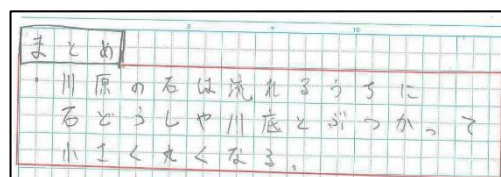 まとめ
・川原の石は流れるうちに
石どうしや川底とぶつかって
小さく丸くなる。